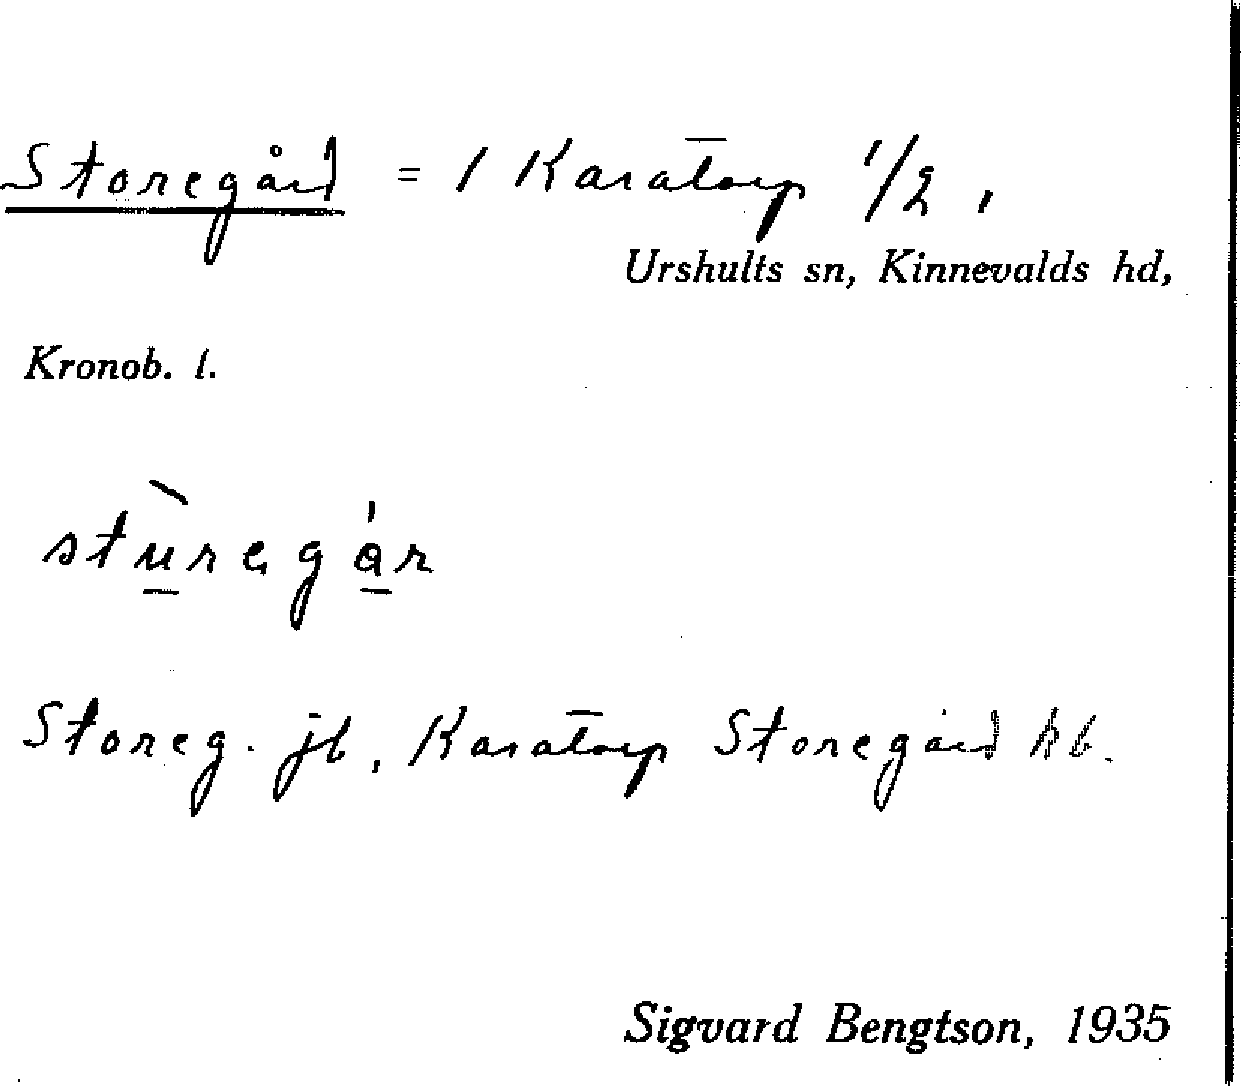 Storegård = 1 Karatorp 1/2,
Urshults sn, Kinnevalds hd,
Kronob. l.
stùregár
Storeg. jb, Karatorp Storegård kb.
Sigvard Bengtson, 1935